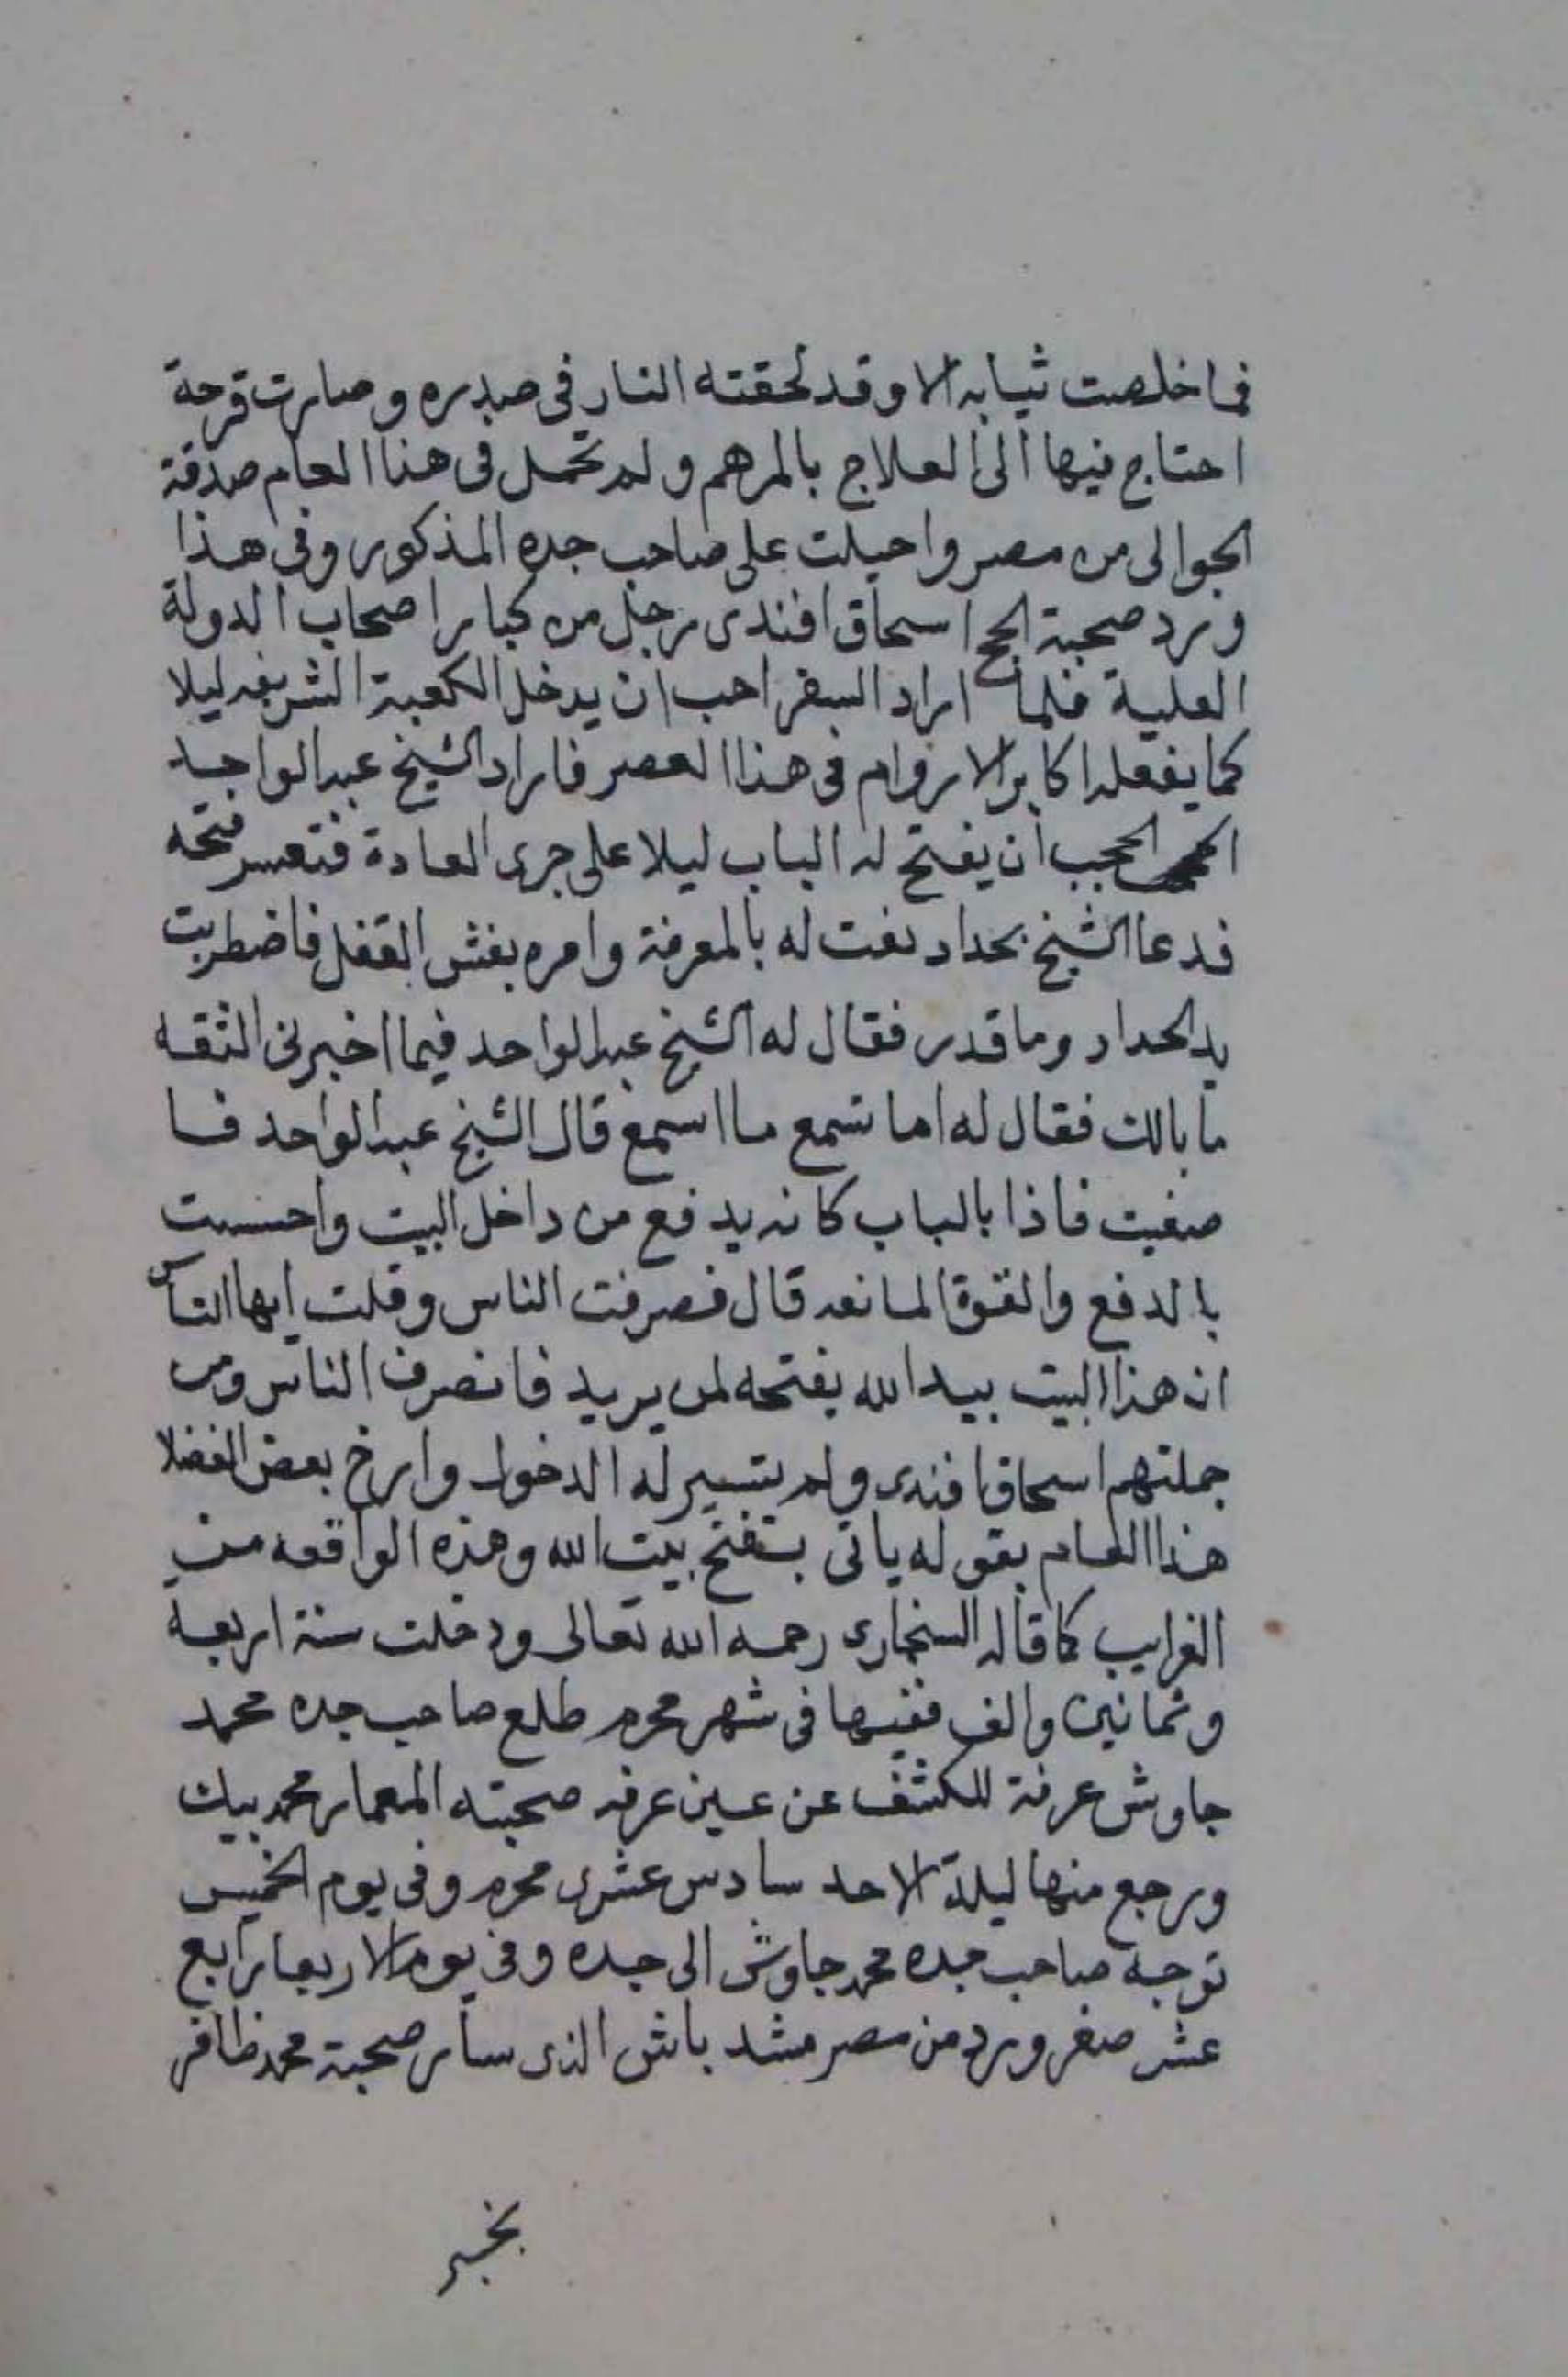 فما خلصت ثيابه الا وقد لحقته النار فى صدره وصارت قرحة
احتاج فيها الى العلاج بالمرهم ولم تحمل فى هذا العام صدقة
الجوالى من مصر واحيلت على صاحب جده المذكور وفى هذا
ورد صحبة الحج اسحاق افندى رجل من كبار اصحاب الدولة
العلية فلما اراد السفر احب ان يدخل الكعبة الشريفه ليلا
كما يفعله اكابر الاروام فى هذا العصر فاراد الشيخ عبد الواحد
الحجبى ان يفتح له الباب ليلا على جرى العادة فتعسر فتحه
فدعا الشيخ بحداد نعت له بالمعرفة وامره بفش القفل فاضطربت
يد الحداد وما قدر فقال له الشيخ عبد الواحد فيما اخبرنى الثقه
ما بالك فقال له اما تسمع ما اسمع قال الشيخ عبد الواحد فا
صغيت فاذا بالباب كانه يدفع من داخل البيت واحسست
بالدفع والقوة المانعه قال فصرفت الناس وقلت ايها الناس
ان هذا البيت بيد الله يفتحه لمن يريد فانصرف الناس ومن
جملتهم اسحاق افندى ولم يتيسر له الدخول وارخ بعض الفضلا
هذا العام بقوله ياتى بستفتح بيت الله وهذه الواقعه من
الغرايب كما قاله السنجارى رحمه الله تعالى ودخلت سنة اربعه
وثمانين والف ففيها فى شهر محرم طلع صاحب جده محمد
جاوش عرفة للكشف عن عين عرفه صحبته المعمار محمد بيك
ورجع منها ليلة الاحد سادس عشرى محرم وفى يوم الخميس
توجه صاحب جده محمد جاوش الى جده وفى يوم الاربعا رابع
عشر صفر ورد من مصر مشد باش الذى سار صحبة محمد ظافر
بخبر